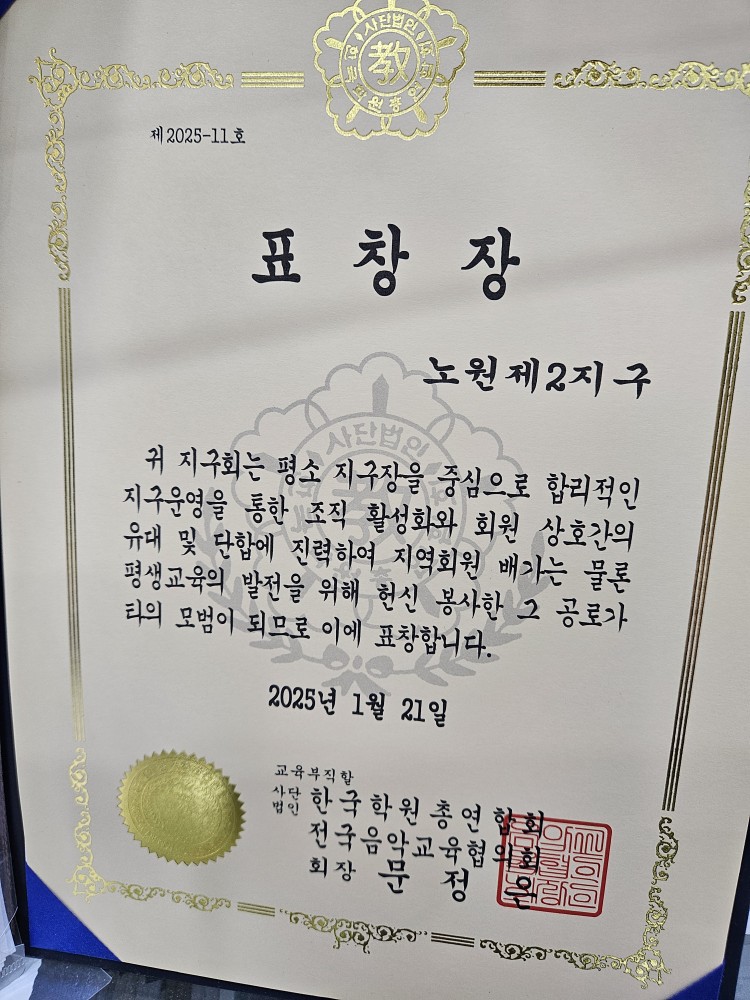 사단법인
教
제2025-11호
표창장
노원제2지구
사단법인
귀 지구회는 평소 지구장을 중심으로 합리적인
지구운영을 통한 조직 활성화와 회원 상호간의
유대 및 단합에 진력하여 지역회원 배가는 물론
평생교육의 발전을 위해 헌신 봉사한 그 공로가
타의 모범이 되므로 이에 표창합니다.
2025년 1월 21일
교육부직할
사단법인 한국학원총연합회
전국음악교육협의회
회장 문정은